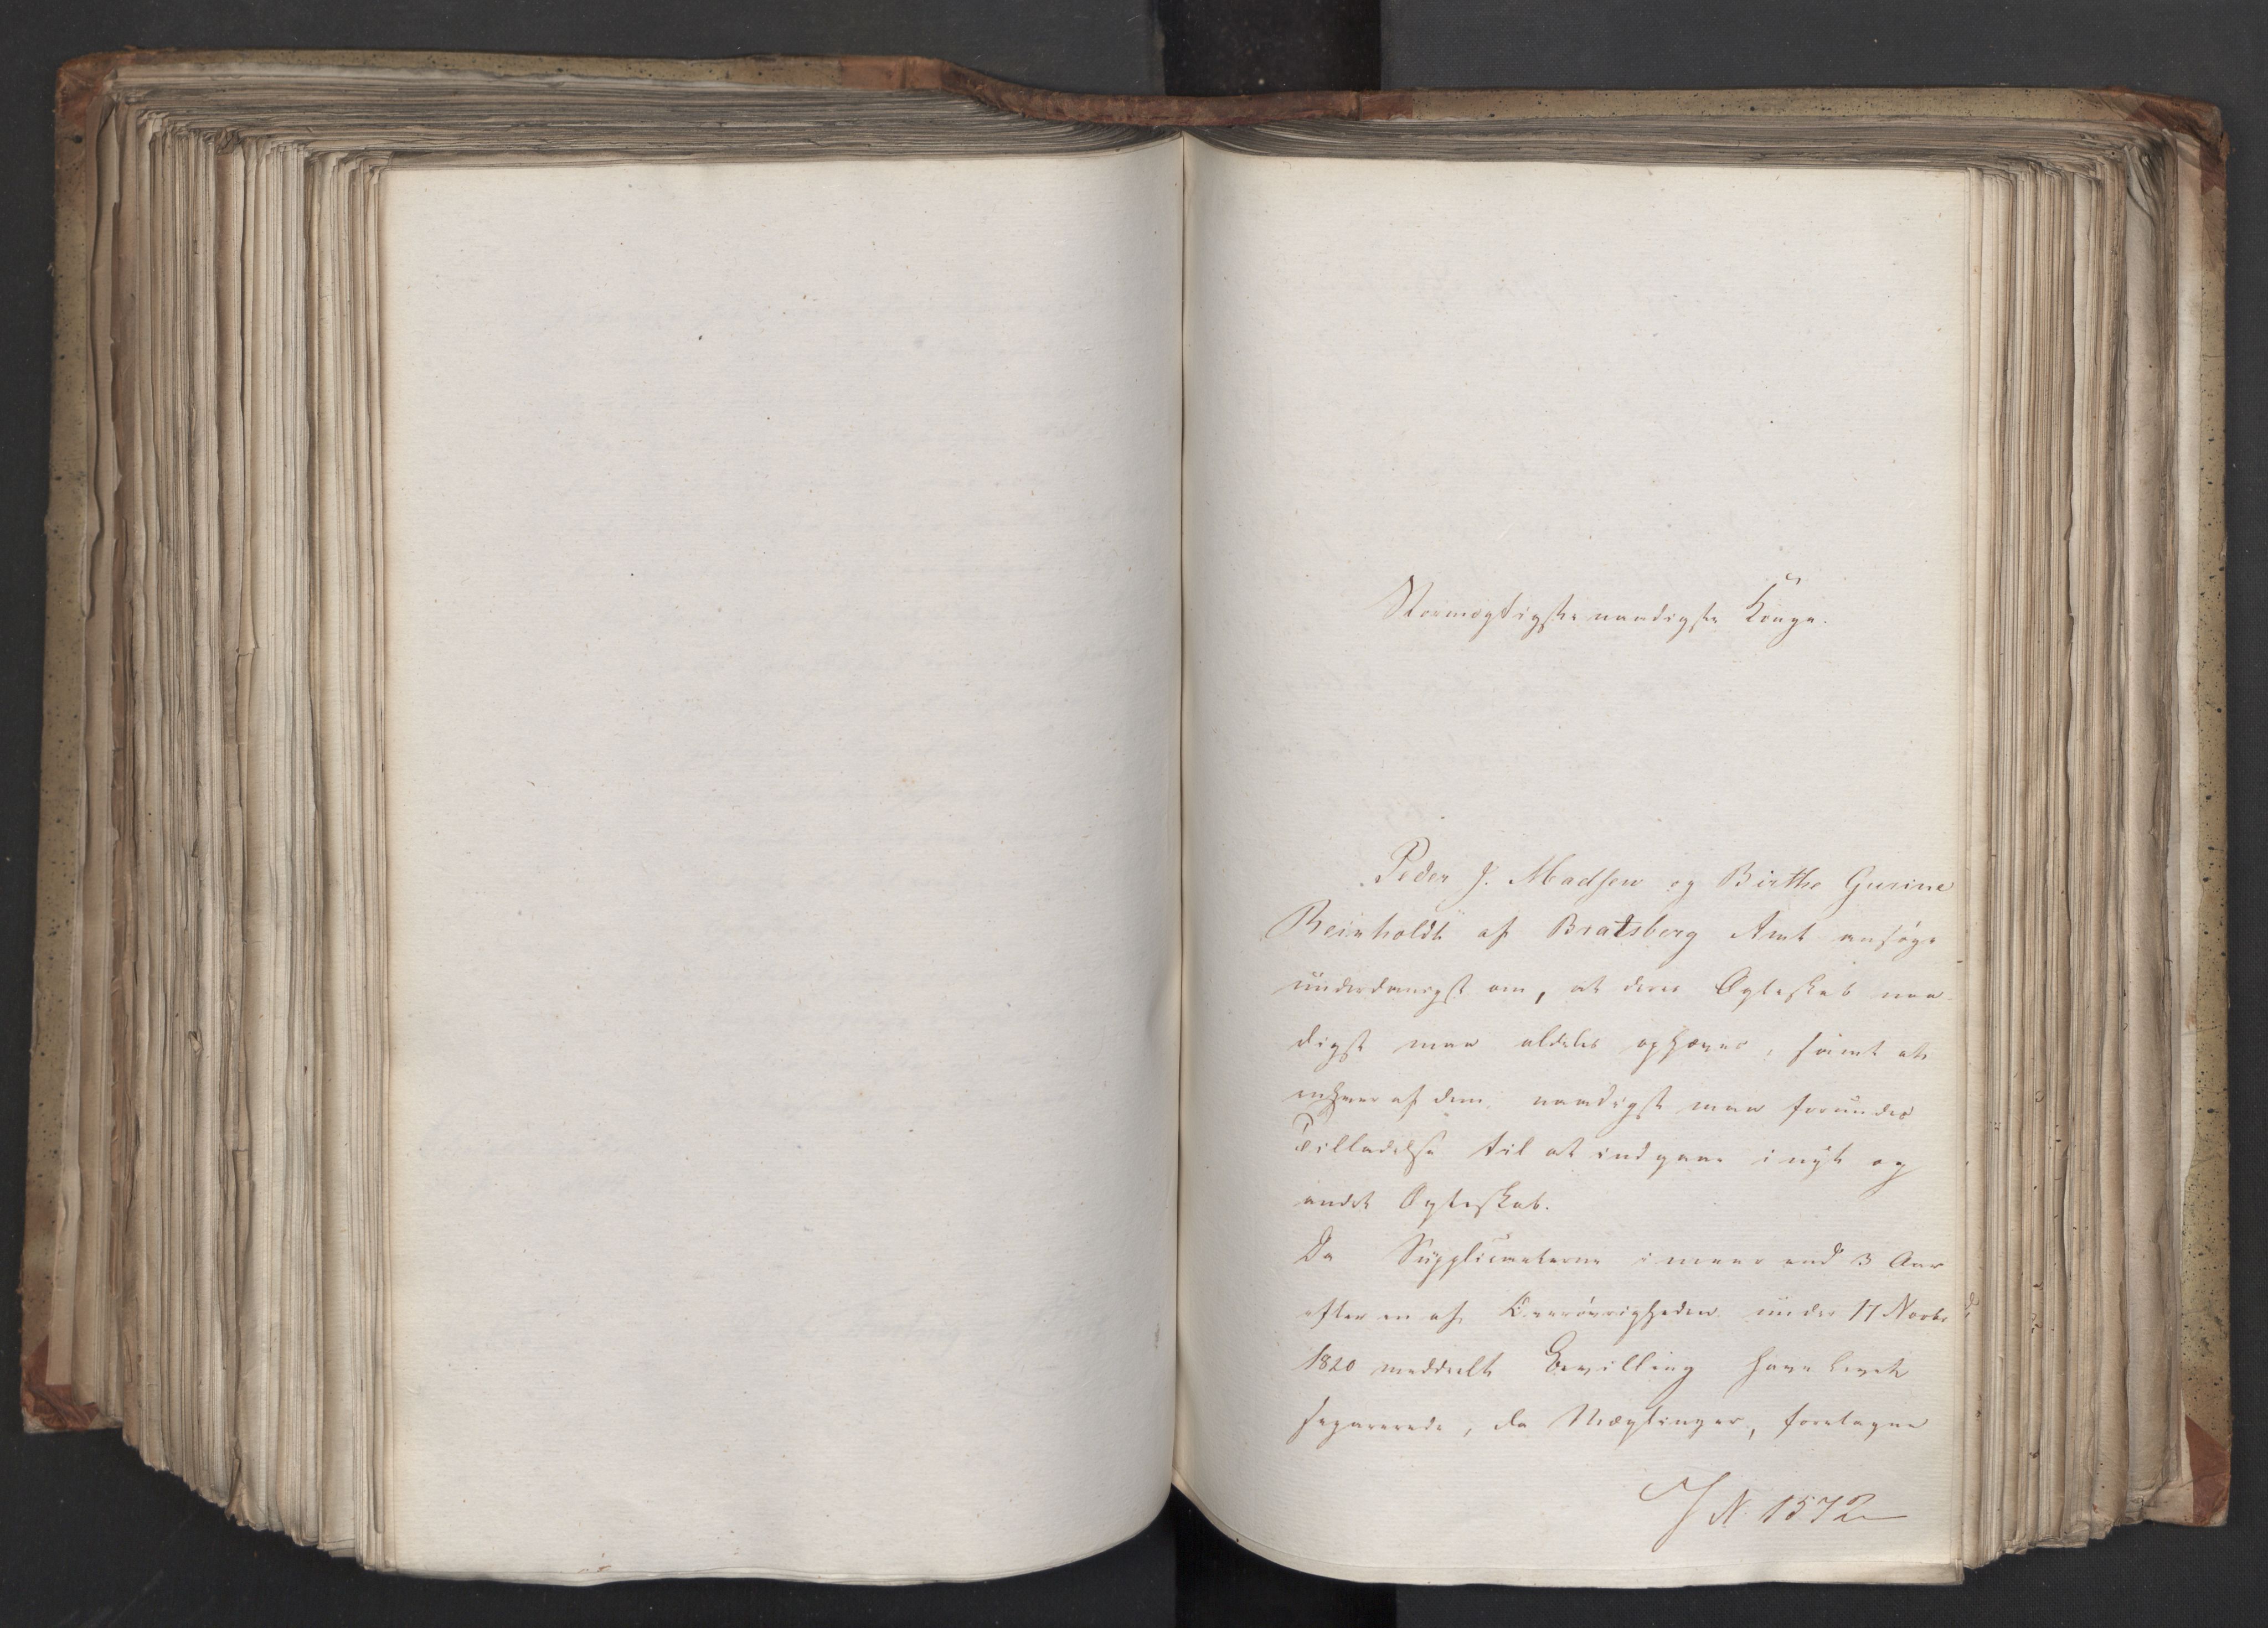 Stormægtigste naadigste Konge.
Peder J. Madsen og Birthe Gurine
Reinholdt af Bratsberg Amt ansøge
underdanigst om, at deres Ægteskab naa-
digst maa aldeles ophæves, samt at
enhver af dem naadigst maa forundes
Tilladelse til at indgaae i nyt og
andet Ægteskab.
Da Supplicanterne i meer end 3 Aar
efter en af Overøvrigheden under 17 Novbr
1820 meddeelt Bevilling have levet
separerede, da Mæglinger, foretagne
J N 1572